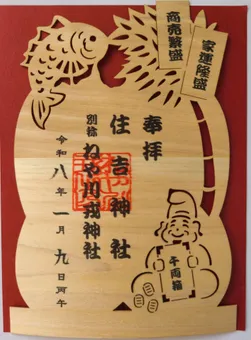 家運隆盛
商売繁盛
奉拝
住吉神社
別称 ねや川戎神社
令和八年一月九日丙午
千両箱